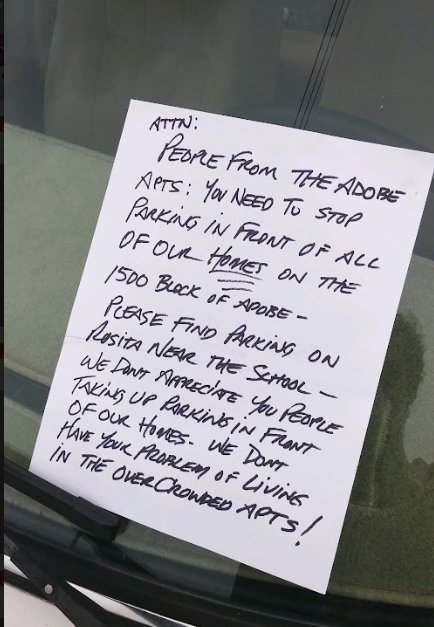 ATTN:
PEOPLE FROM THE ADOBE
APTS: YOU NEED TO STOP
PARKING IN FRONT OF ALL
OF OUR HOMES ON THE
1500 BLOCK OF ADOBE -
PLEASE FIND PARKING ON
ROSITA NEAR THE SCHOOL -
WE DONT APPRECIATE YOU PEOPLE
TAKING UP PARKING IN FRONT
OF OUR HOMES. WE DONT
HAVE YOUR PROBLEM OF LIVING
IN THE OVERCROWDED APTS!